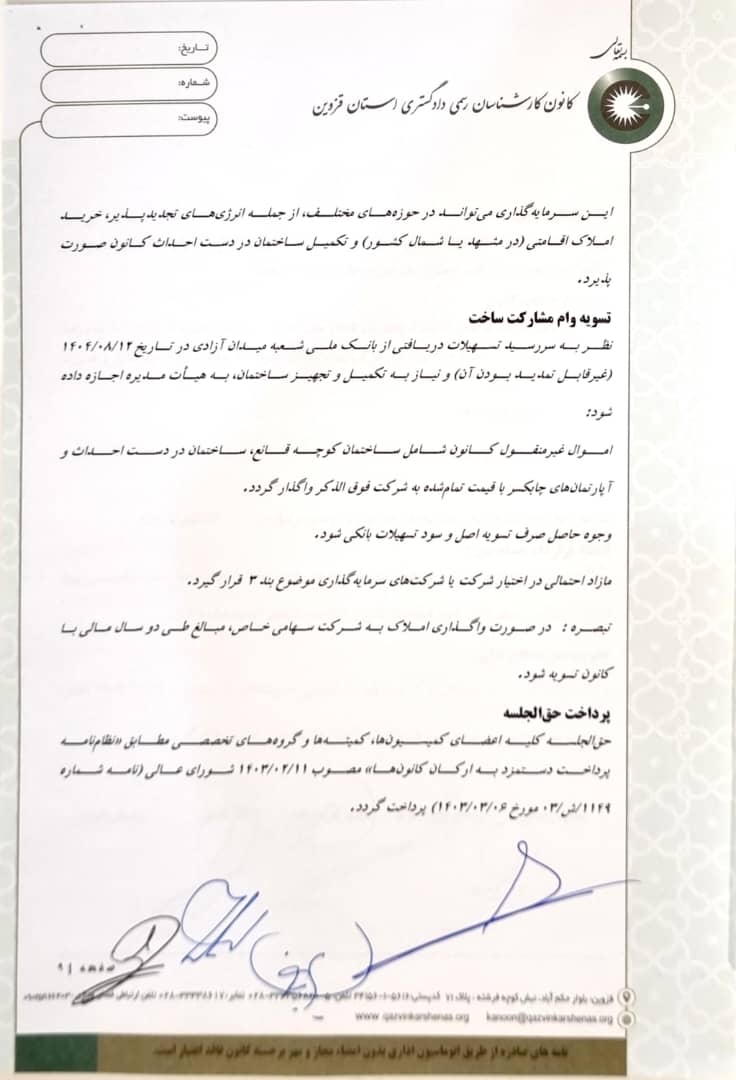 بسمه تعالی
کانون کارشناسان رسمی دادگستری استان قزوین
تاریخ:
شماره:
پیوست:
این سرمایه‌گذاری می‌تواند در حوزه‌های مختلف، از جمله انرژی‌های تجدیدپذیر، خرید
املاک اقامتی (در مشهد یا شمال کشور) و تکمیل ساختمان در دست احداث کانون صورت
پذیرد.
تسویه وام مشارکت ساخت
نظر به سررسید تسهیلات دریافتی از بانک ملی شعبه میدان آزادی در تاریخ ۱۴۰۴/۰۸/۱۲
(غیرقابل تمدید بودن آن) و نیاز به تکمیل و تجهیز ساختمان، به هیأت مدیره اجازه داده
شود:
اموال غیرمنقول کانون شامل ساختمان کوچه قانع، ساختمان در دست احداث و
آپارتمان‌های چابکسر با قیمت تمام‌شده به شرکت فوق الذکر واگذار گردد.
وجوه حاصل صرف تسویه اصل و سود تسهیلات بانکی شود.
مازاد احتمالی در اختیار شرکت یا شرکت‌های سرمایه‌گذاری موضوع بند ۳ قرار گیرد.
تبصره : در صورت واگذاری املاک به شرکت سهامی خاص، مبالغ طی دو سال مالی با
کانون تسویه شود.
پرداخت حق‌الجلسه
حق‌الجلسه کلیه اعضای کمیسیون‌ها، کمیته‌ها و گروه‌های تخصصی مطابق «نظام‌نامه
پرداخت دستمزد به ارکان کانون‌ها» مصوب ۱۴۰۳/۰۲/۱۱ شورای عالی (نامه شماره
۱۱۴۹/ش/۰۳ مورخ ۱۴۰۳/۰۳/۰۶) پرداخت گردد.
صفحه | ۹
قزوین، بلوار حکم آباد، نبش کوچه فرشته ، پلاک ۷۱ کدپستی
www.qazvinkarshenas.org kanoon@qazvinkarshenas.org
نامه های صادره از طریق اتوماسیون اداری بدون امضاء مجاز و مهر برجسته کانون فاقد اعتبار است.